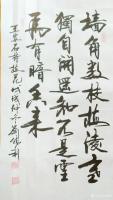 墙角数枝梅凌寒
獨自開遥知不是雪
為有暗香来
王安石詩梅花戊戌